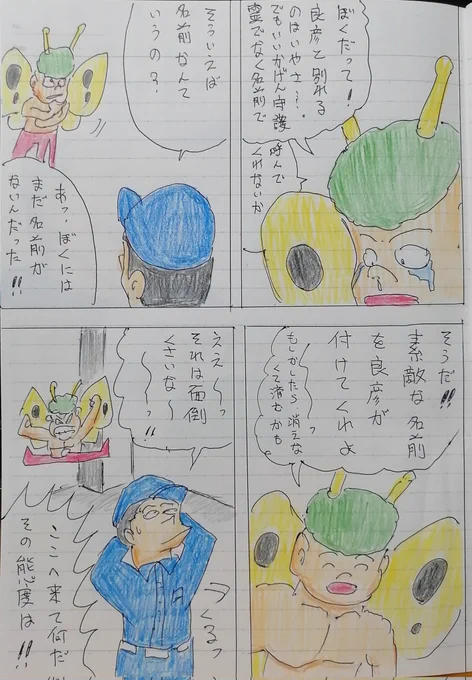 ぼくだって!
良彦と別れる
のはいやさ…。
でもいいかげん守護
霊でなく名前で
呼んで
くれないか
そういえば
名前なんて
いうの?
あっ、ぼくには
まだ名前が
ないんだった!!
そうだ!!
素敵な名前
を良彦が
付けてくれよ
もしかしたら消えな
くて済むかも
〜っ
ええ〜っ
それは面倒
くさいな〜
〜っ!!
つくるっ
ここへ来て何だ
その態度は!!